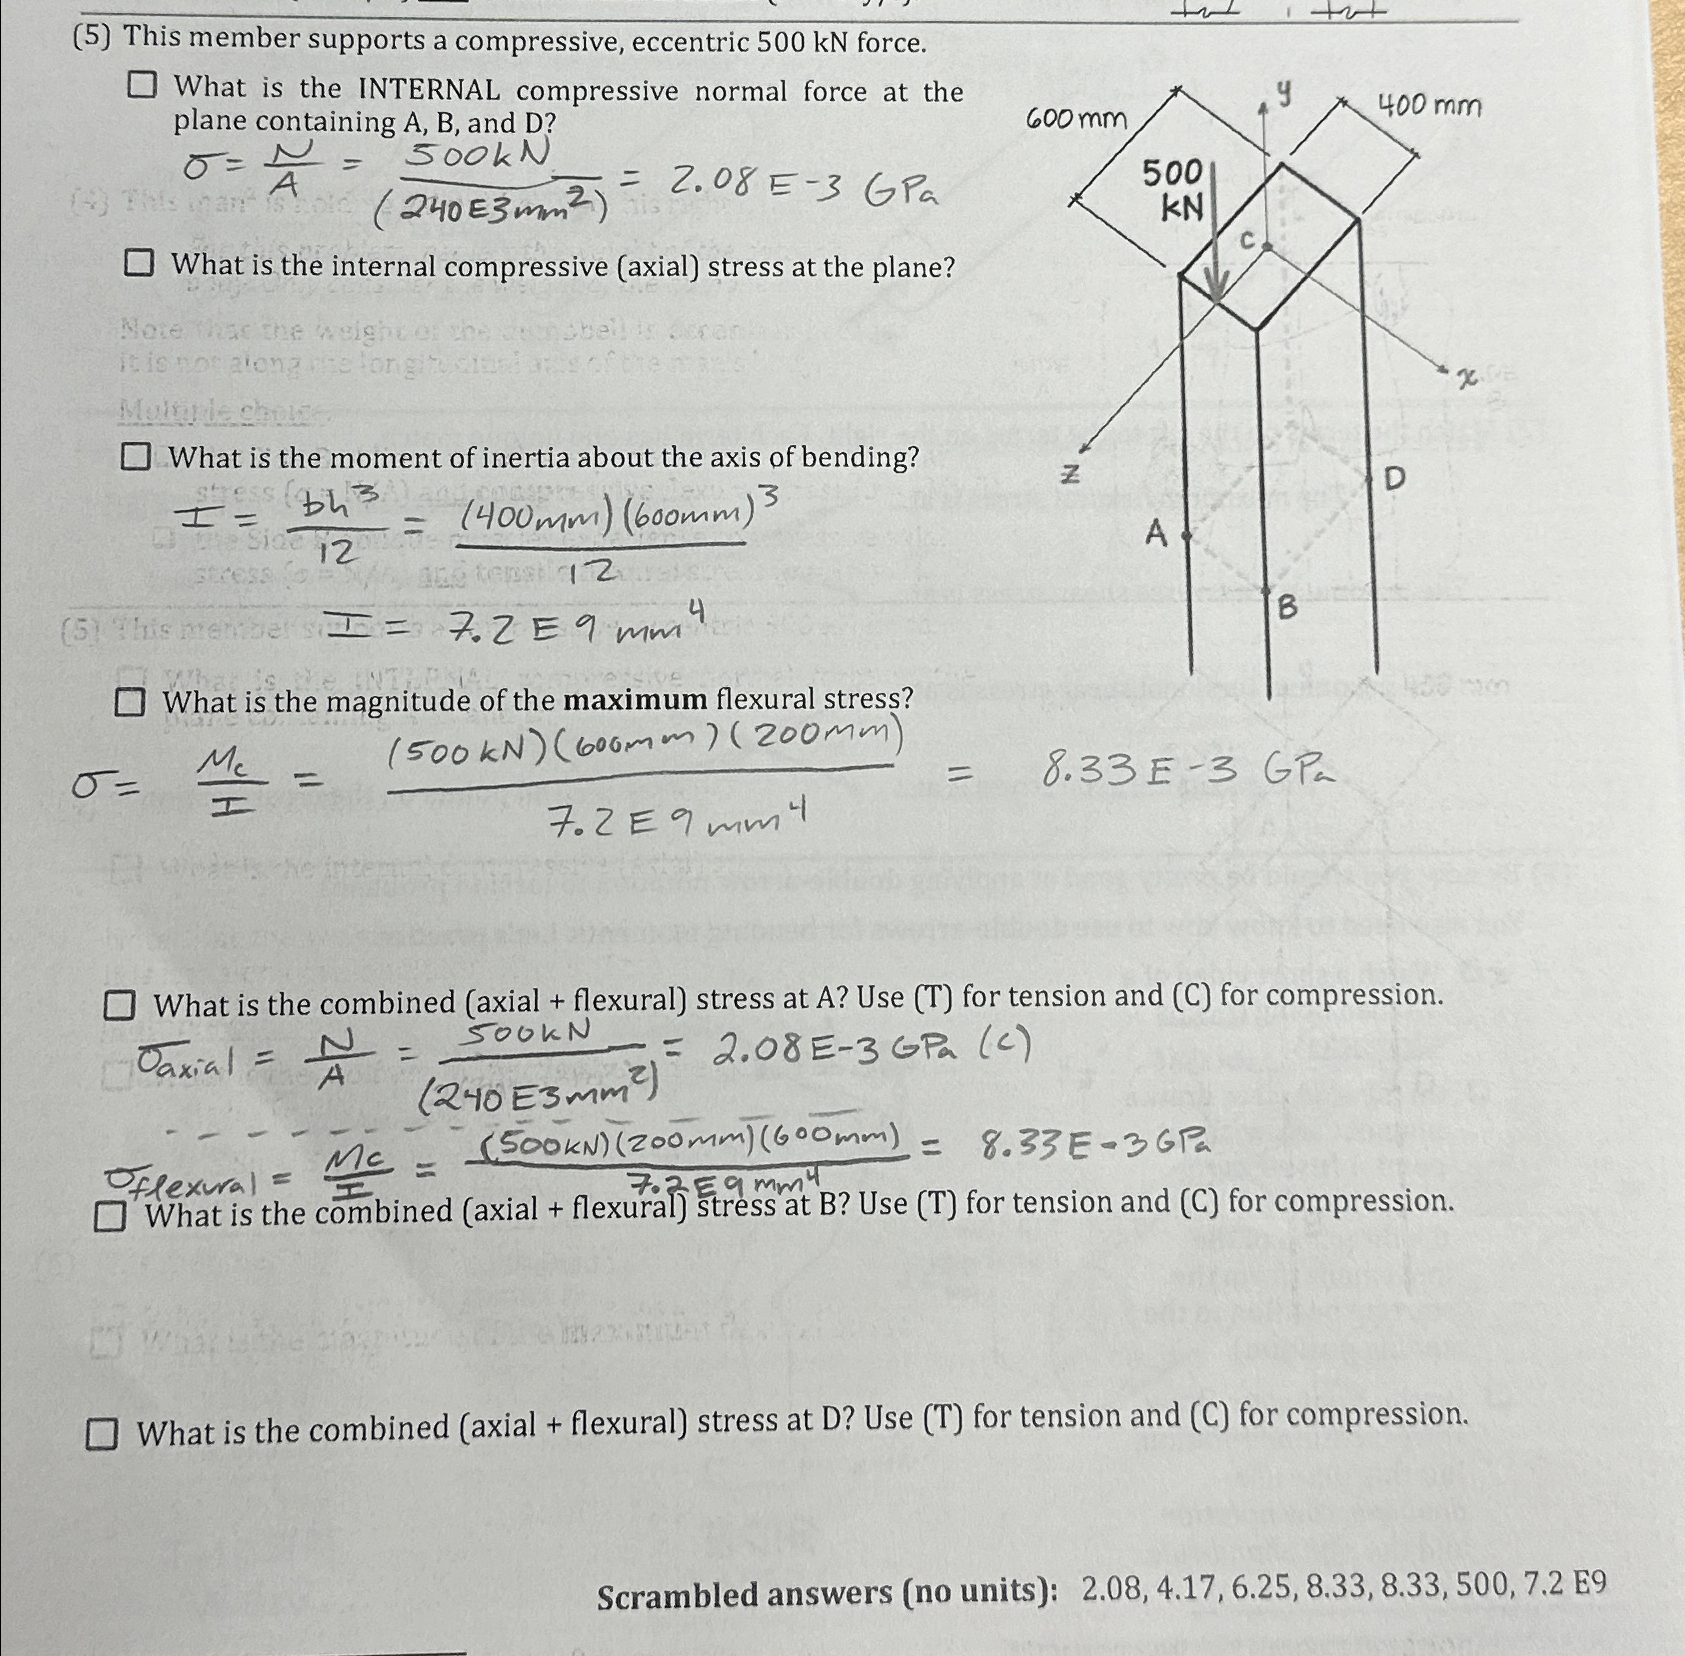 (5) This member supports a compressive, eccentric 500 kN force.
☐ What is the INTERNAL compressive normal force at the
plane containing A, B, and D?
σ = N/A = 500kN/(240E3mm²) = 2.08 E-3 GPa
☐ What is the internal compressive (axial) stress at the plane?
☐ What is the moment of inertia about the axis of bending?
I = bh³/12 = (400mm)(600mm)³/12
I = 7.2 E 9 mm⁴
☐ What is the magnitude of the maximum flexural stress?
σ = Mc/I = (500kN)(600mm)(200mm)/7.2E9mm⁴ = 8.33E-3 GPa
☐ What is the combined (axial + flexural) stress at A? Use (T) for tension and (C) for compression.
σaxial = N/A = 500kN/(240E3mm²) = 2.08E-3 GPa (C)
σflexural = Mc/I = (500kN)(200mm)(600mm)/7.2E9mm⁴ = 8.33E-3GPa
☐ What is the combined (axial + flexural) stress at B? Use (T) for tension and (C) for compression.
☐ What is the combined (axial + flexural) stress at D? Use (T) for tension and (C) for compression.
Scrambled answers (no units): 2.08, 4.17, 6.25, 8.33, 8.33, 500, 7.2 E9
y
600mm
400mm
500
kN
C
x
z
D
A
B